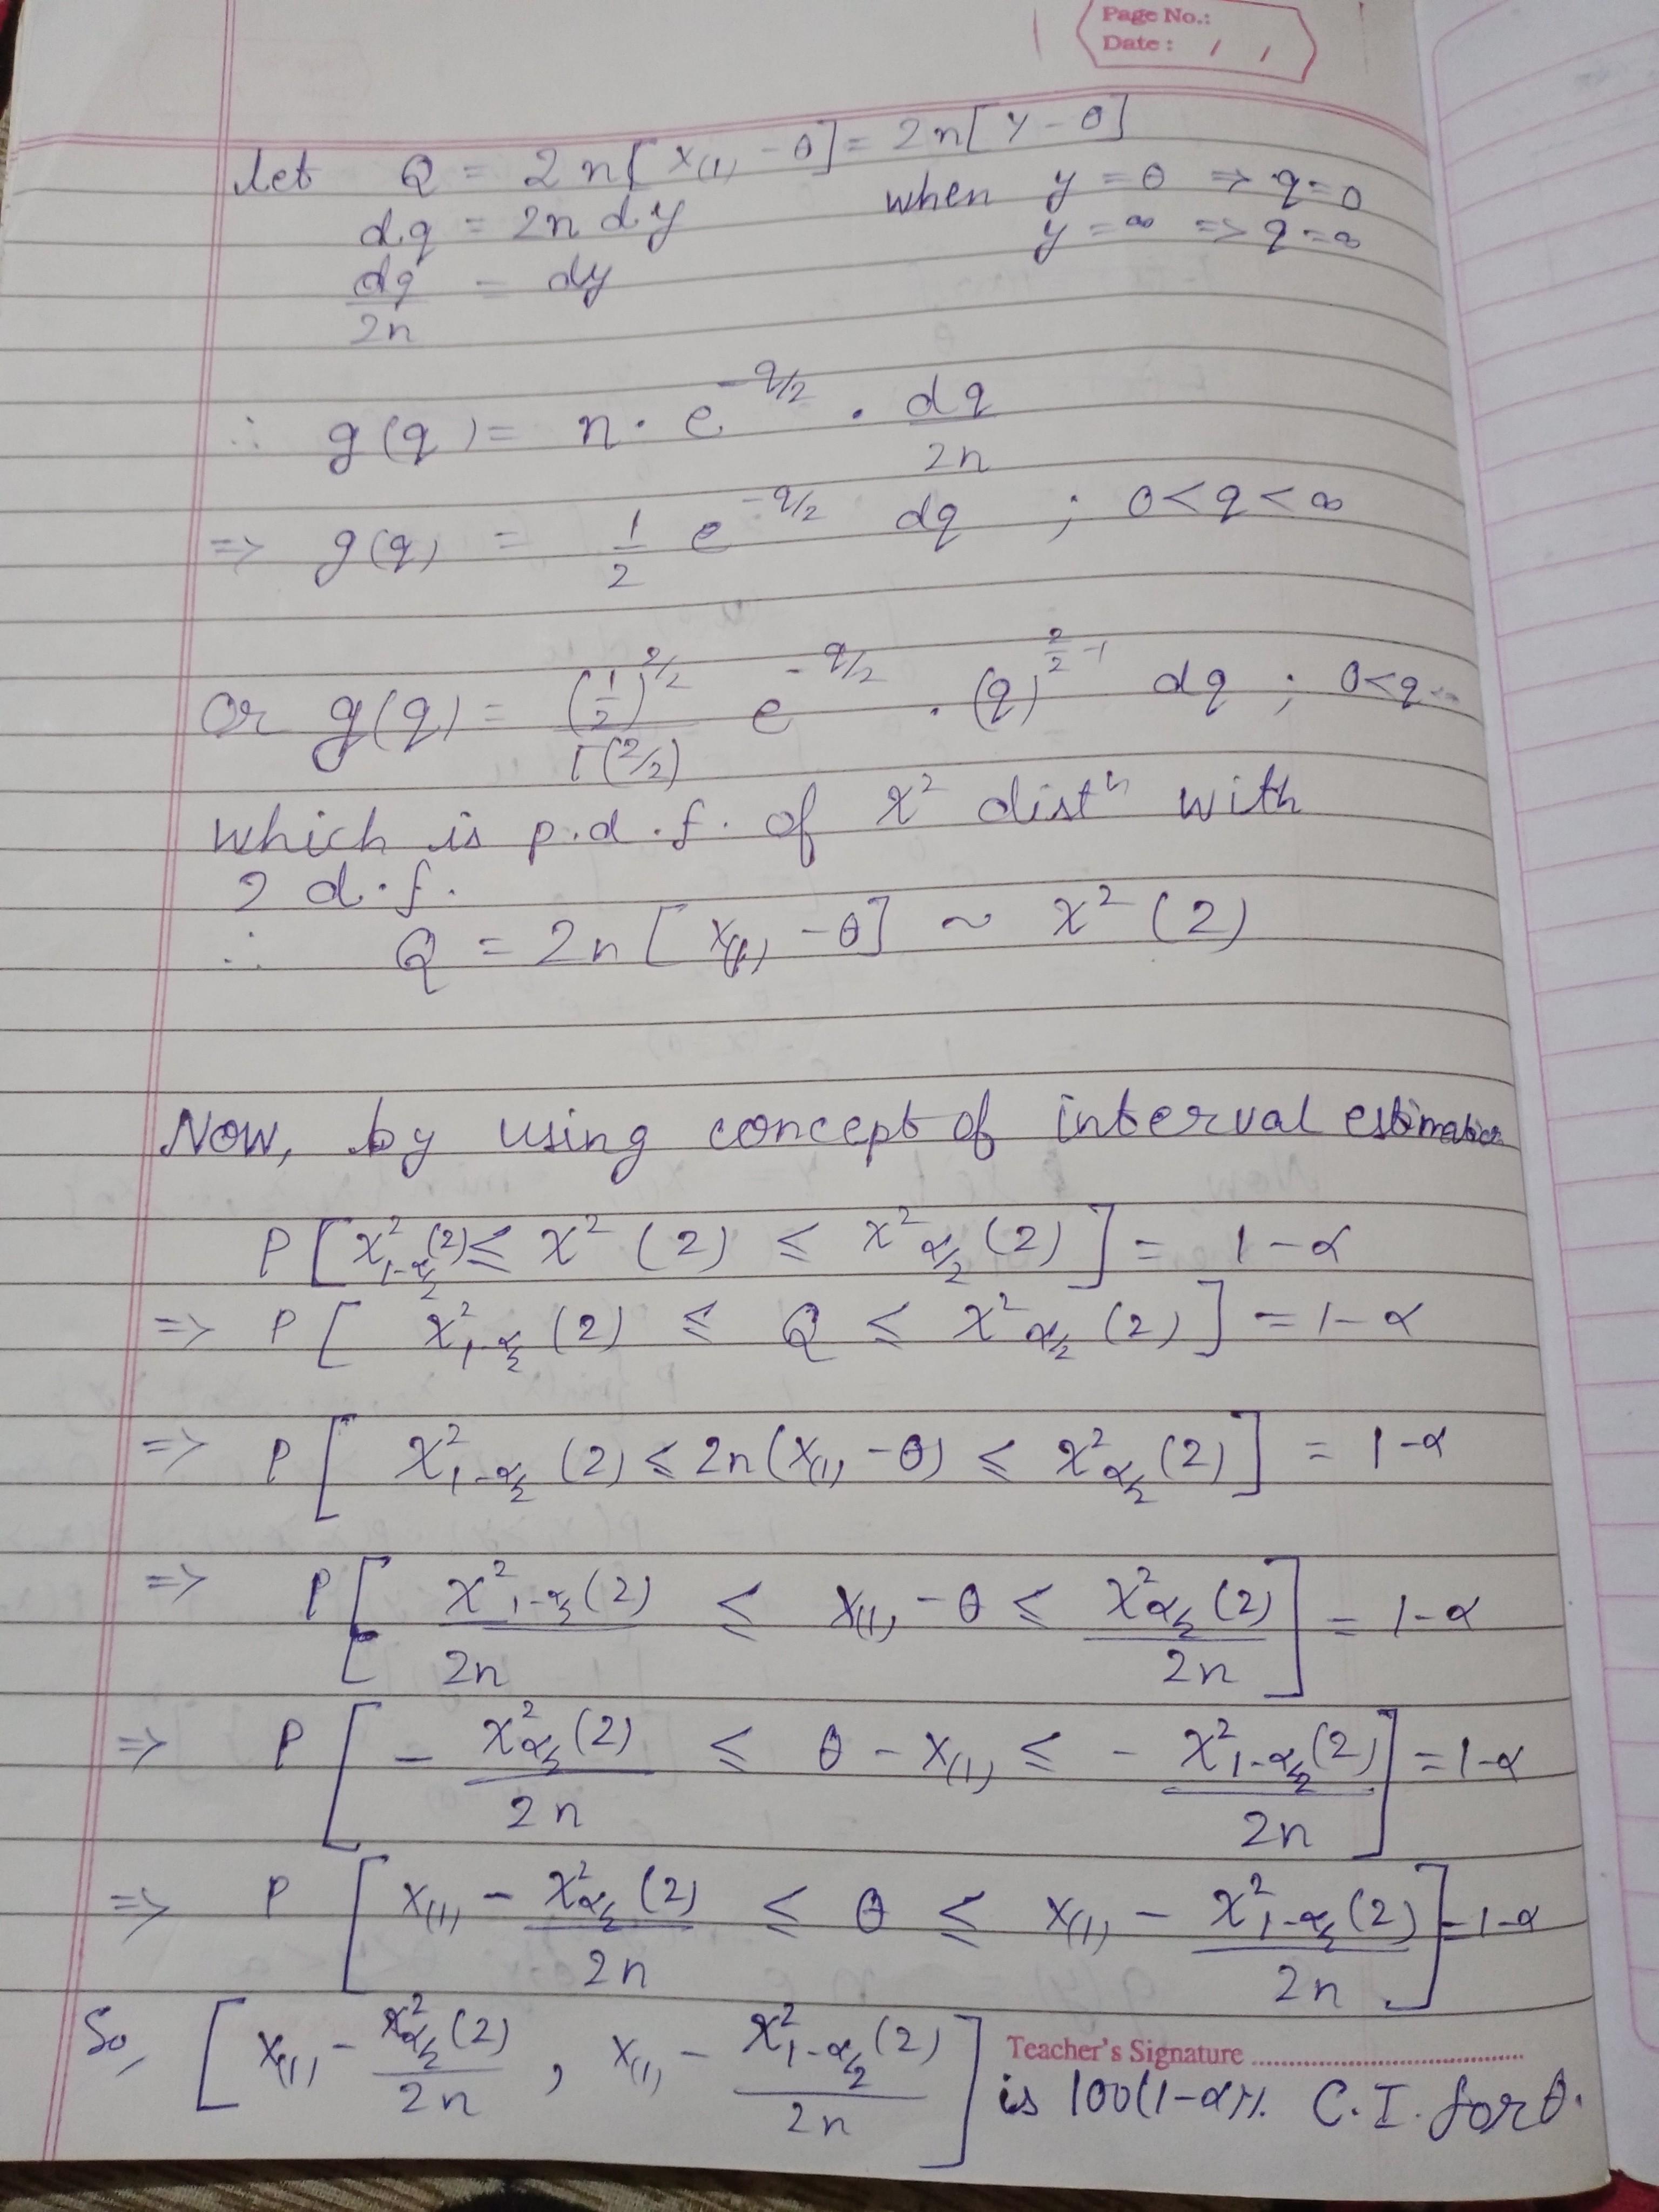 Page No.:
Date : / /
Let Q = 2n[X₍₁₎ - θ] = 2n[Y - θ]
dq = 2n dy when y = θ ⇒ q = 0
y = ∞ ⇒ q = ∞
dq/2n = dy
∴ g(q) = n · e^{-q/2} · dq/2n
⇒ g(q) = 1/2 e^{-q/2} dq ; 0 < q < ∞
or g(q) = (1/2)^{2/2} / Γ(2/2) e^{-q/2} · (q)^{2/2 - 1} dq ; 0 < q < ∞
which is p.d.f. of χ² distⁿ with
2 d.f.
∴ Q = 2n [X₍₁₎ - θ] ~ χ² (2)
Now, by using concept of interval estimation
P[χ²_{1-α/2}(2) ≤ χ² (2) ≤ χ²_{α/2} (2)] = 1 - α
⇒ P[χ²_{1-α/2} (2) ≤ Q ≤ χ²_{α/2} (2)] = 1 - α
⇒ P[χ²_{1-α/2} (2) ≤ 2n(X₍₁₎ - θ) ≤ χ²_{α/2} (2)] = 1 - α
⇒ P[χ²_{1-α/2} (2)/2n ≤ X₍₁₎ - θ ≤ χ²_{α/2} (2)/2n] = 1 - α
⇒ P[- χ²_{α/2} (2)/2n ≤ θ - X₍₁₎ ≤ - χ²_{1-α/2} (2)/2n] = 1 - α
⇒ P[X₍₁₎ - χ²_{α/2} (2)/2n ≤ θ ≤ X₍₁₎ - χ²_{1-α/2} (2)/2n] = 1 - α
So, [X₍₁₎ - χ²_{α/2} (2)/2n , X₍₁₎ - χ²_{1-α/2} (2)/2n] is 100(1-α)% C.I. for θ.
Teacher's Signature